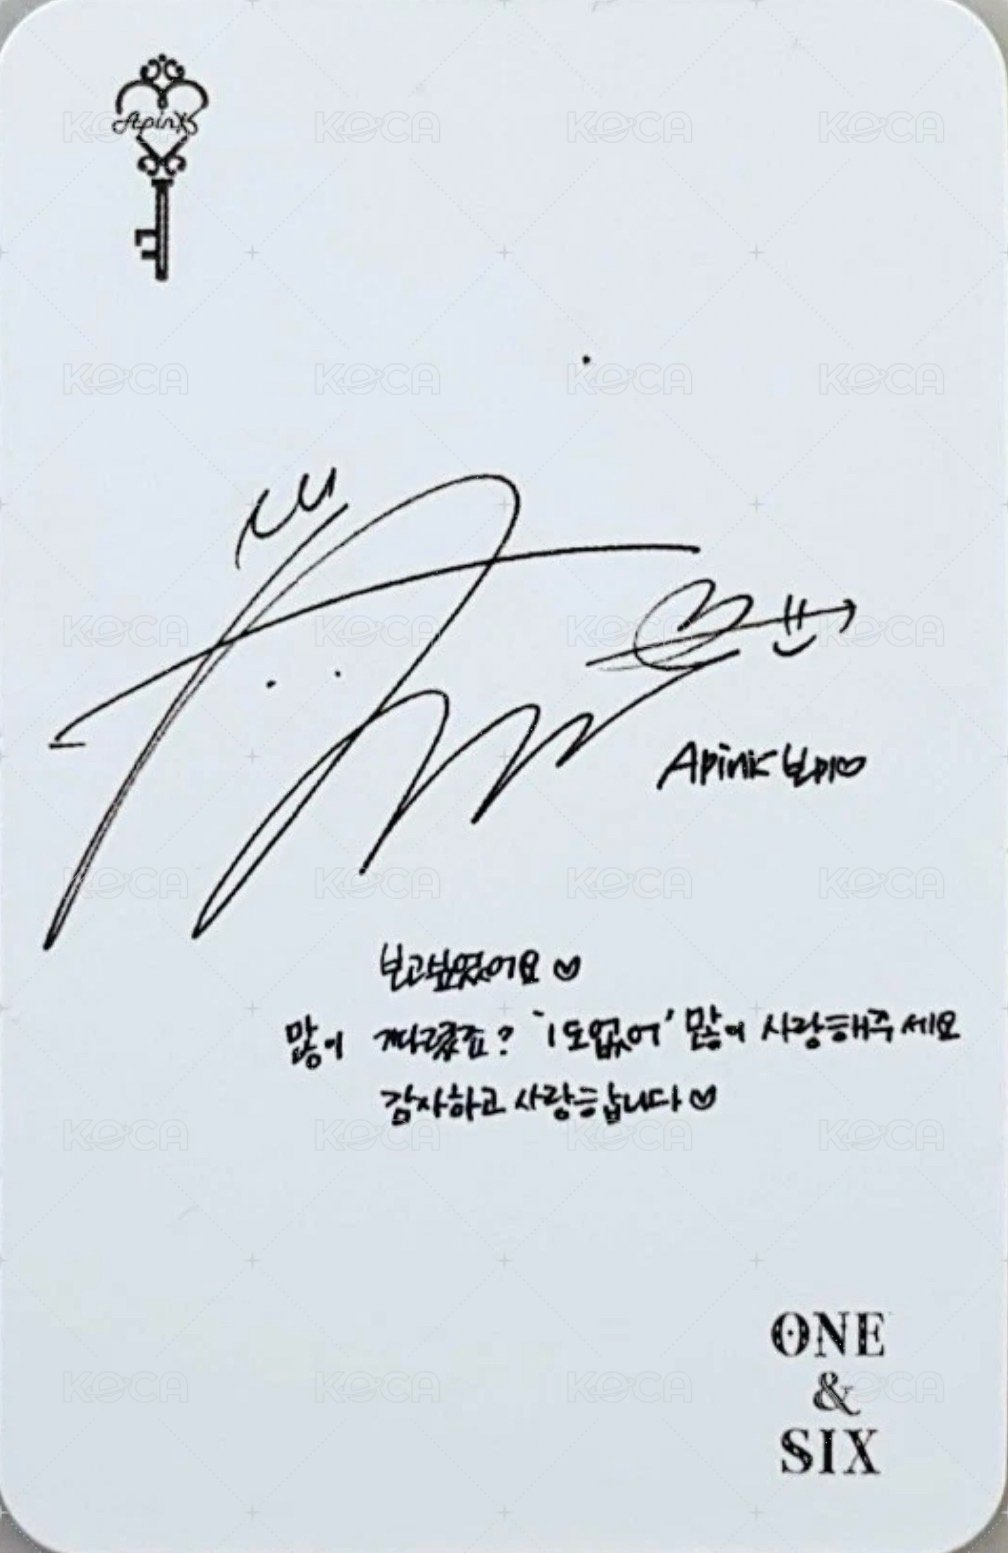 Apink
Apink 보미♡
보고싶었어요♡
많이 기다렸죠? '1도없어' 많이 사랑해주세요
감사하고 사랑합니다♡
ONE
&
SIX
KOCA